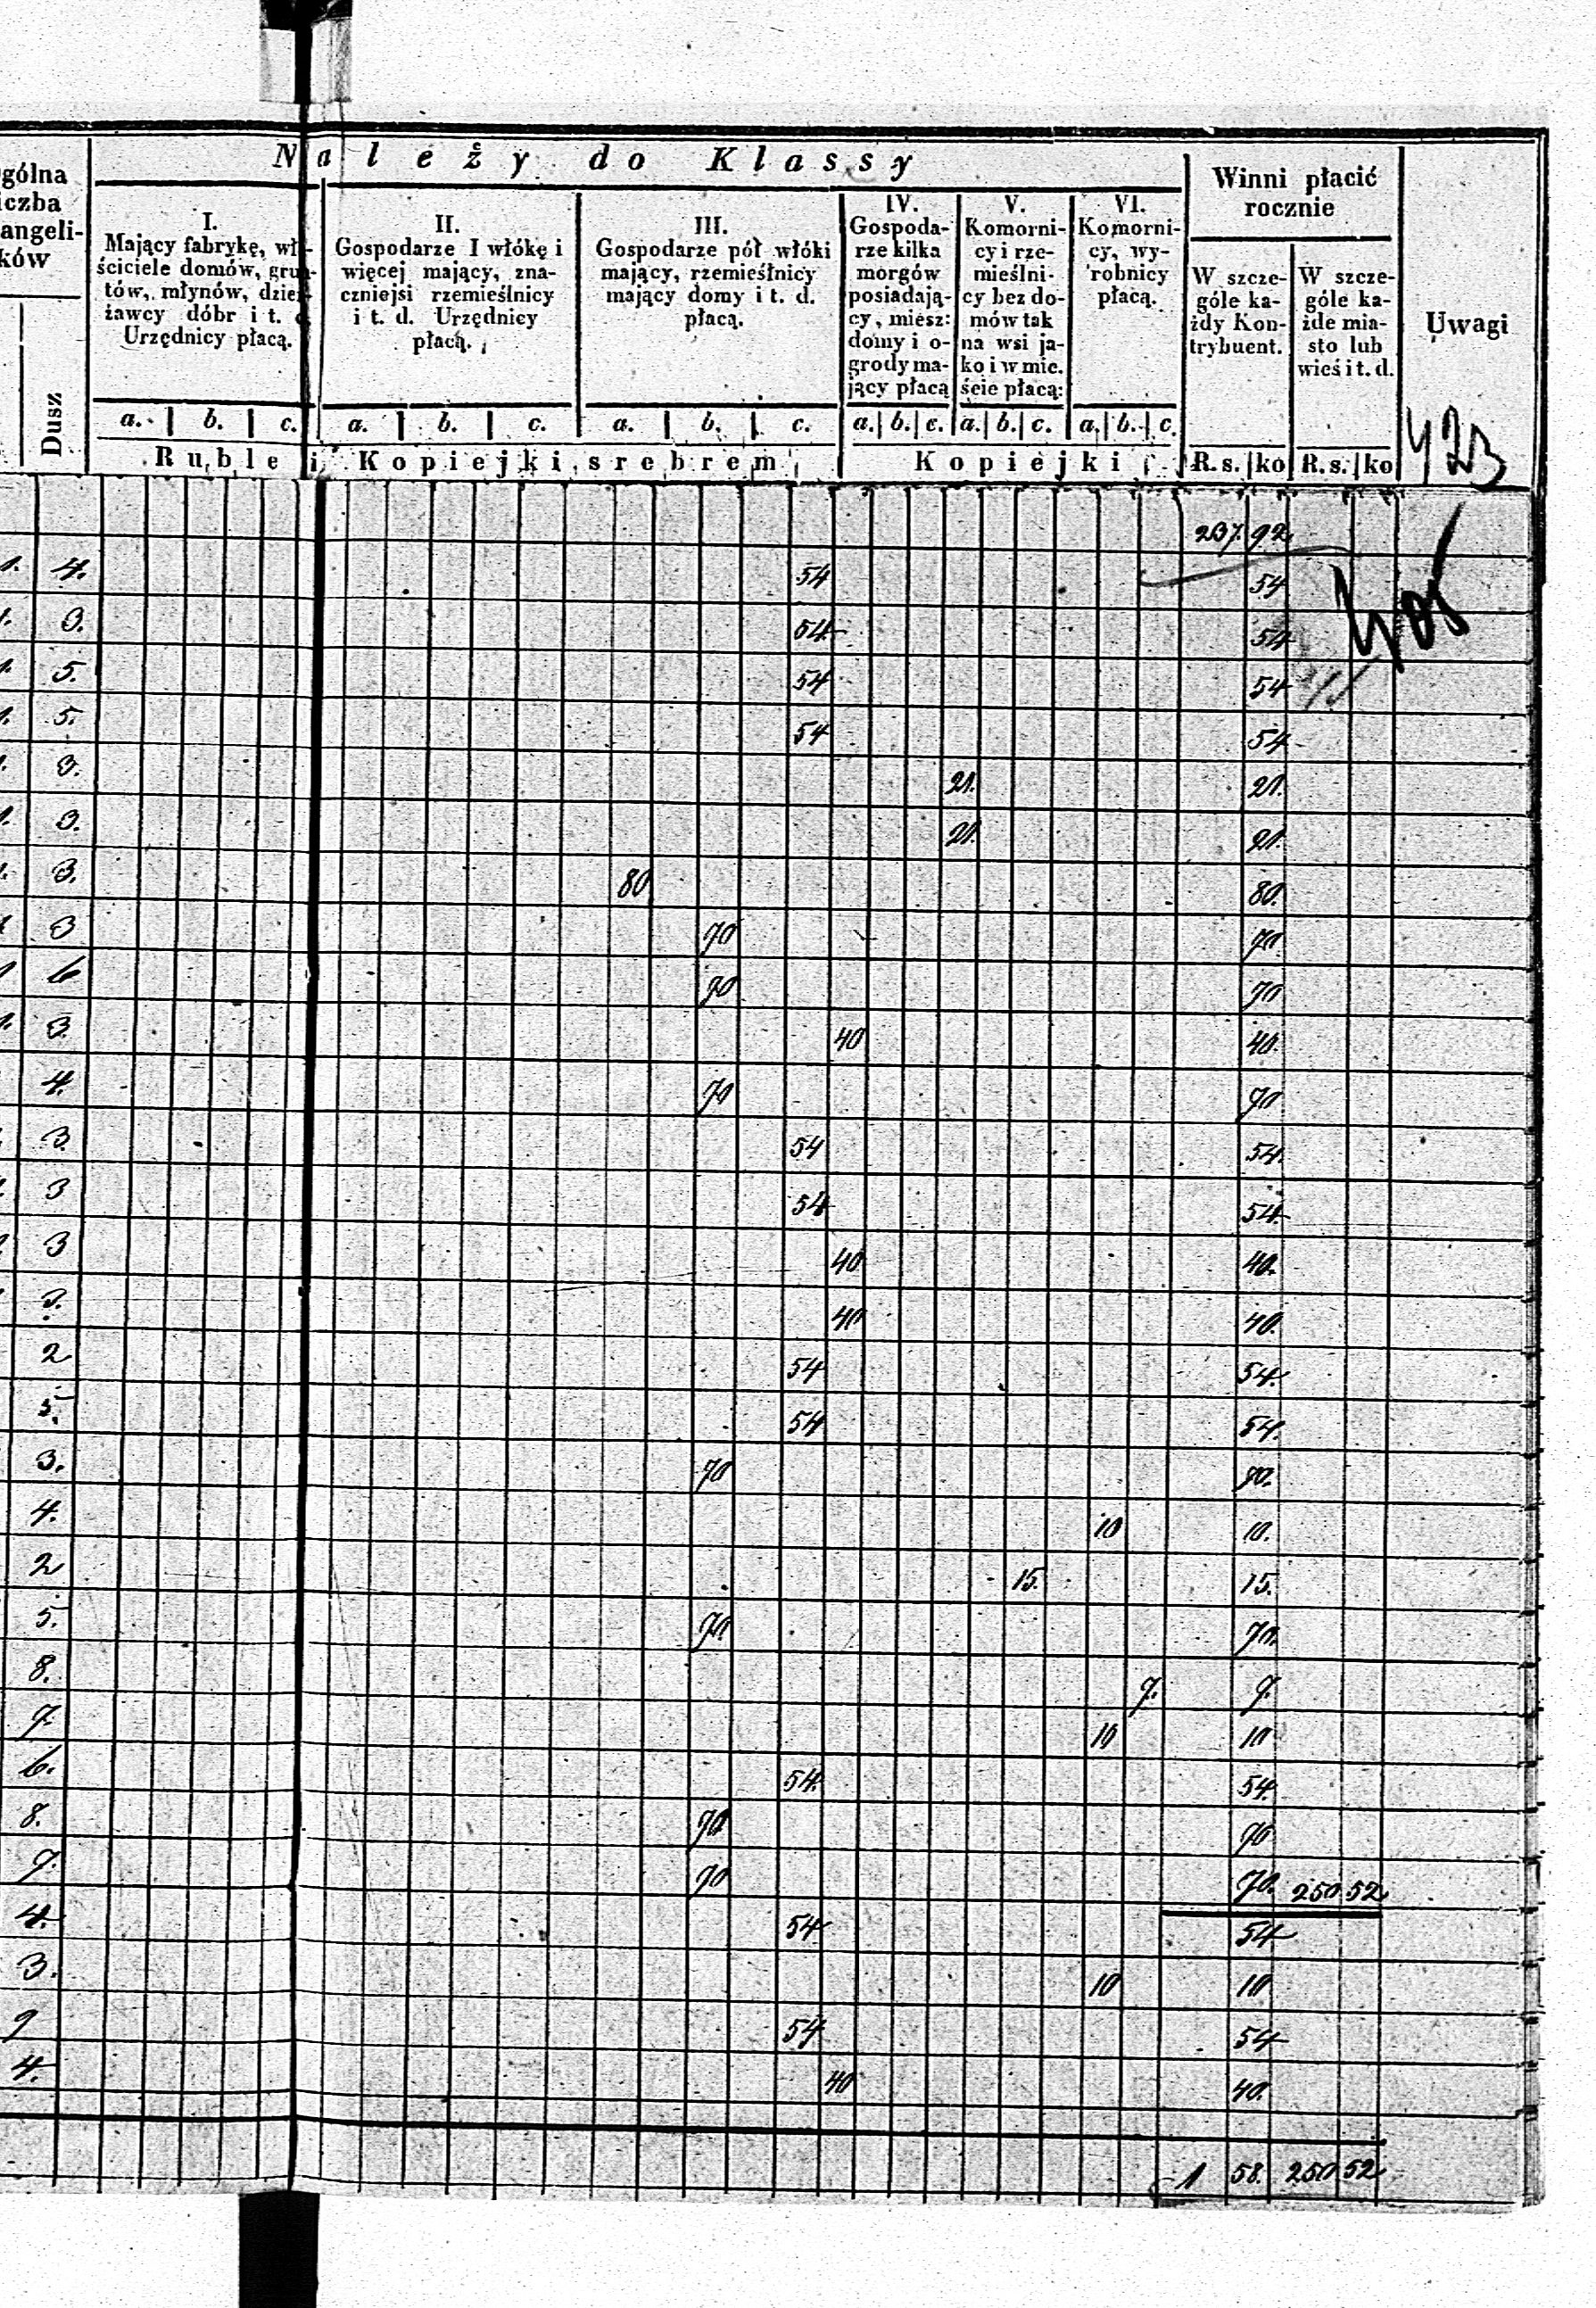 Należy do Klassy
gólna
iczba
angeli-
ków
Dusz
I.
Mający fabrykę, wł-
ściciele domów, grun-
tów, młynów, dzier-
żawcy dóbr i t. d
Urzędnicy płacą.
II.
Gospodarze I włókę i
więcej mający, zna-
czniejsi rzemieślnicy
i t. d. Urzędnicy
płacą.
III.
Gospodarze pół włóki
mający, rzemieślnicy
mający domy i t. d.
płacą.
IV.
Gospoda-
rze kilka
morgów
posiadają-
cy, miesz:
domy i o-
grody ma-
jący płacą
V.
Komorni-
cy i rze-
mieślni-
cy bez do-
mów tak
na wsi ja-
ko i w mie.
ście płacą:
VI.
Komorni-
cy, wy-
robnicy
płacą.
Winni płacić
rocznie
W szcze-
góle ka-
żdy Kon-
trybuent.
W szcze-
góle ka-
żde mia-
sto lub
wieś i t. d.
Uwagi
a. b. c. a. b. c. a. b. c. a. b. c. a. b. c. a. b. c.
Ruble i Kopiejki srebrem Kopiejki R.s. ko R.s. ko
423
237. 92
1. 4. 54 54
1. 3. 54 54
1. 5. 54 54
1. 5. 54 54
3. 21. 21.
1. 3. 21. 21.
1. 3. 80 80.
1 3 70 70
1 6 70 70
1. 3. 40 40.
4. 70 70
3. 54 54.
3 54 54
3 40 40.
3. 40 40.
2 54 54.
5. 54 54.
3. 70 70.
4. 10 10.
2 15. 15.
5. 70. 70.
8. 7. 7.
7. 10 10
6. 54. 54.
8. 70 70
7. 70 70. 250 52
4. 54 54
3. 10 10
54 54
4. 40 40.
1 58. 250 52